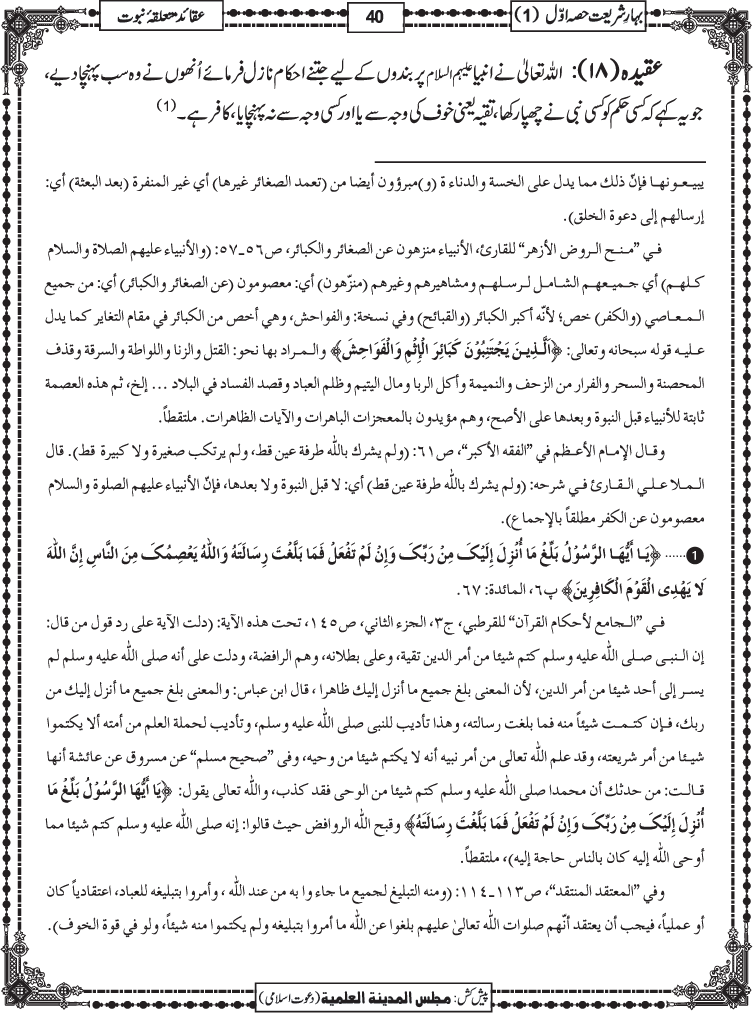 بہارِ شریعت حصہ اوّل (1)
40
عقائد متعلقۂ نبوت
عقیدہ (۱۸): اللہ تعالیٰ نے انبیا علیہم السلام پر بندوں کے لیے جتنے احکام نازل فرمائے اُنھوں نے وہ سب پہنچا دیے،
جو یہ کہے کہ کسی حکم کو کسی نبی نے چھپا رکھا، تقیہ یعنی خوف کی وجہ سے یا اور کسی وجہ سے نہ پہنچایا، کافر ہے۔ (1)
يبيعونها فإنّ ذلك مما يدل على الخسة والدناءة (و)مبرؤون أيضا من (تعمد الصغائر غيرها) أي غير المنفرة (بعد البعثة) أي:
إرسالهم إلى دعوة الخلق).
في ”منح الروض الأزهر“ للقارئ، الأنبياء منزهون عن الصغائر والكبائر، ص٥٦۔٥٧: (والأنبياء عليهم الصلاة والسلام
كلهم) أي جميعهم الشامل لرسلهم ومشاهيرهم وغيرهم (منزّهون) أي: معصومون (عن الصغائر والكبائر) أي: من جميع
المعاصي (والكفر) خص؛ لأنّه أكبر الكبائر (والقبائح) وفي نسخة: والفواحش، وهي أخص من الكبائر في مقام التغاير كما يدل
عليه قوله سبحانه وتعالى: ﴿اَلَّذِينَ يَجْتَنِبُوْنَ كَبَائِرَ الْإِثْمِ وَالْفَوَاحِشَ﴾ والمراد بها نحو: القتل والزنا واللواطة والسرقة وقذف
المحصنة والسحر والفرار من الزحف والنميمة وأكل الربا ومال اليتيم وظلم العباد وقصد الفساد في البلاد ... إلخ، ثم هذه العصمة
ثابتة للأنبياء قبل النبوة وبعدها على الأصح، وهم مؤيدون بالمعجزات الباهرات والآيات الظاهرات. ملتقطاً.
وقال الإمام الأعظم في ”الفقه الأكبر“، ص٦١: (ولم يشرك بالله طرفة عين قط، ولم يرتكب صغيرة ولا كبيرة قط). قال
الملا علي القارئ في شرحه: (ولم يشرك بالله طرفة عين قط) أي: لا قبل النبوة ولا بعدها، فإنّ الأنبياء عليهم الصلوة والسلام
معصومون عن الكفر مطلقاً بالإجماع).
1...... ﴿يَـا أَيُّهَـا الرَّسُوْلُ بَلِّغْ مَا أُنْزِلَ إِلَيْكَ مِنْ رَبِّكَ وَإِنْ لَمْ تَفْعَلْ فَمَا بَلَّغْتَ رِسَالَتَهُ وَاللهُ يَعْصِمُكَ مِنَ النَّاسِ إِنَّ اللهَ
لَا يَهْدِى الْقَوْمَ الْكَافِرِيْنَ﴾ پ٦، المائدة: ٦٧.
في ”الجامع لأحكام القرآن“ للقرطبي، ج٣، الجزء الثاني، ص١٤٥، تحت هذه الآية: (دلت الآية على رد قول من قال:
إن النبى صلى الله عليه وسلم كتم شيئا من أمر الدين تقية، وعلى بطلانه، وهم الرافضة، ودلت على أنه صلى الله عليه وسلم لم
يسر إلى أحد شيئا من أمر الدين، لأن المعنى بلغ جميع ما أنزل إليك ظاهرا ، قال ابن عباس: والمعنى بلغ جميع ما أنزل إليك من
ربك، فإن كتمت شيئاً منه فما بلغت رسالته، وهذا تأديب للنبى صلى الله عليه وسلم، وتأديب لحملة العلم من أمته ألا يكتموا
شيئا من أمر شريعته، وقد علم الله تعالى من أمر نبيه أنه لا يكتم شيئا من وحيه، وفى ”صحيح مسلم“ عن مسروق عن عائشة أنها
قالت: من حدثك أن محمدا صلى الله عليه وسلم كتم شيئا من الوحى فقد كذب، والله تعالى يقول: ﴿يَا أَيُّهَا الرَّسُوْلُ بَلِّغْ مَا
أُنْزِلَ إِلَيْكَ مِنْ رَبِّكَ وَإِنْ لَمْ تَفْعَلْ فَمَا بَلَّغْتَ رِسَالَتَهُ﴾ وقبح الله الروافض حيث قالوا: إنه صلى الله عليه وسلم كتم شيئا مما
أوحى الله إليه كان بالناس حاجة إليه)، ملتقطاً.
وفي ”المعتقد المنتقد“، ص١١٣۔١١٤: (ومنه التبليغ لجميع ما جاء وا به من عند الله ، وأمروا بتبليغه للعباد، اعتقادياً كان
أو عملياً، فيجب أن يعتقد أنّهم صلوات الله تعالىٰ عليهم بلغوا عن الله ما أمروا بتبليغه ولم يكتموا منه شيئاً، ولو في قوة الخوف).
پیش کش: مجلس المدینة العلمیة (دعوتِ اسلامی)